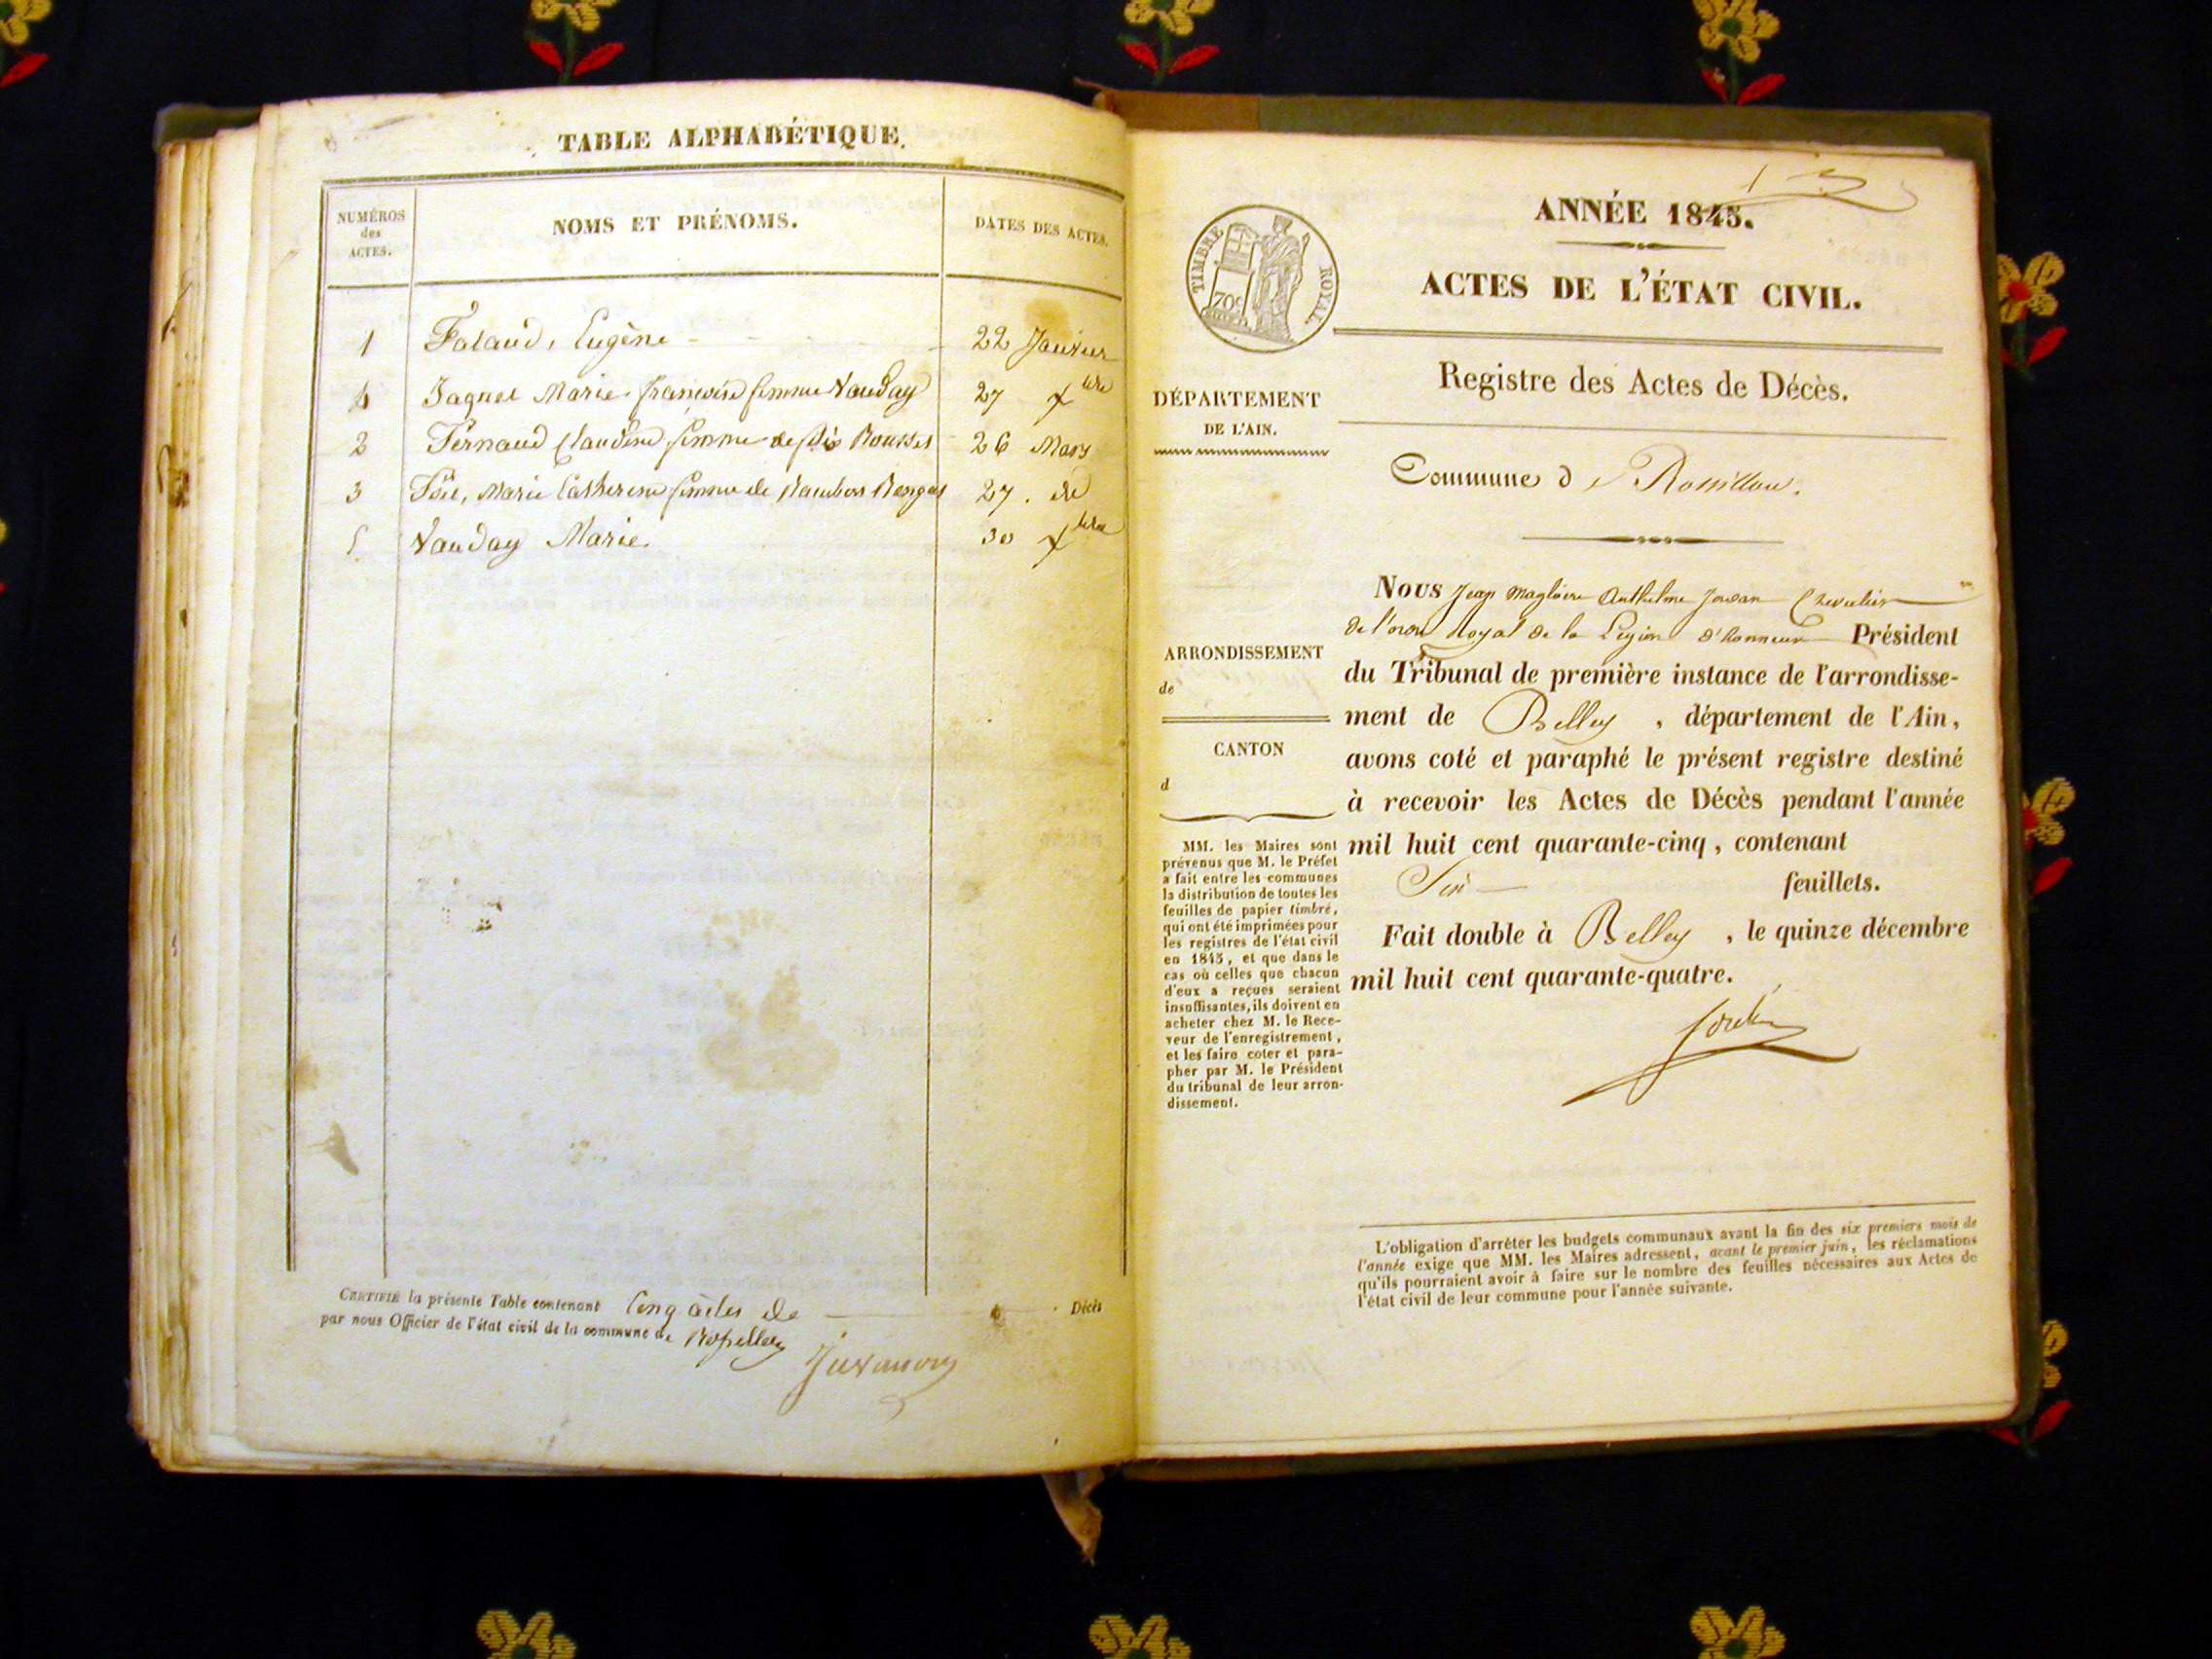 TABLE ALPHABÉTIQUE.
NUMÉROS
des
ACTES.
NOMS ET PRÉNOMS.
DATES DES ACTES.
1 Falaud, Eugène 22 Janvier
4 Jaquet Marie françoise femme Vauday 27 Xbre
2 Pernaud Claudine femme de 26 Mars
3 Marie Catherine femme de 27. de
5 Vauday Marie. 30 Xbre
CERTIFIÉ la présente Table contenant Cinq actes de Décès
par nous Officier de l'état civil de la commune de Rossillon
1
ANNÉE 1845.
TIMBRE ROYAL.
70c
ACTES DE L'ÉTAT CIVIL.
Registre des Actes de Décès.
DÉPARTEMENT
DE L'AIN.
Commune d e Rossillon.
Nous Jean Magloire Anthelme Chevalier
de l'ordre Royal de la Légion d'honneur Président
du Tribunal de première instance de l'arrondisse-
ment de Belley, département de l'Ain,
avons coté et paraphé le présent registre destiné
à recevoir les Actes de Décès pendant l'année
mil huit cent quarante-cinq, contenant
Six feuillets.
Fait double à Belley, le quinze décembre
mil huit cent quarante-quatre.
ARRONDISSEMENT
de
CANTON
d
MM. les Maires sont
prévenus que M. le Préfet
a fait entre les communes
la distribution de toutes les
feuilles de papier timbré,
qui ont été imprimées pour
les registres de l'état civil
en 1845, et que dans le
cas où celles que chacun
d'eux a reçues seraient
insuffisantes, ils doivent en
acheter chez M. le Rece-
veur de l'enregistrement,
et les faire coter et para-
pher par M. le Président
du tribunal de leur arron-
dissement.
L'obligation d'arrêter les budgets communaux avant la fin des six premiers mois de
l'année exige que MM. les Maires adressent, avant le premier juin, les réclamations
qu'ils pourraient avoir à faire sur le nombre des feuilles nécessaires aux Actes de
l'état civil de leur commune pour l'année suivante.